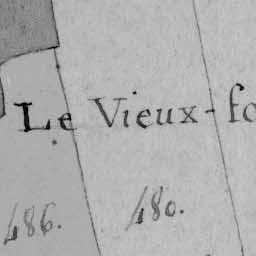 Le Vieux-fo
486. 480.